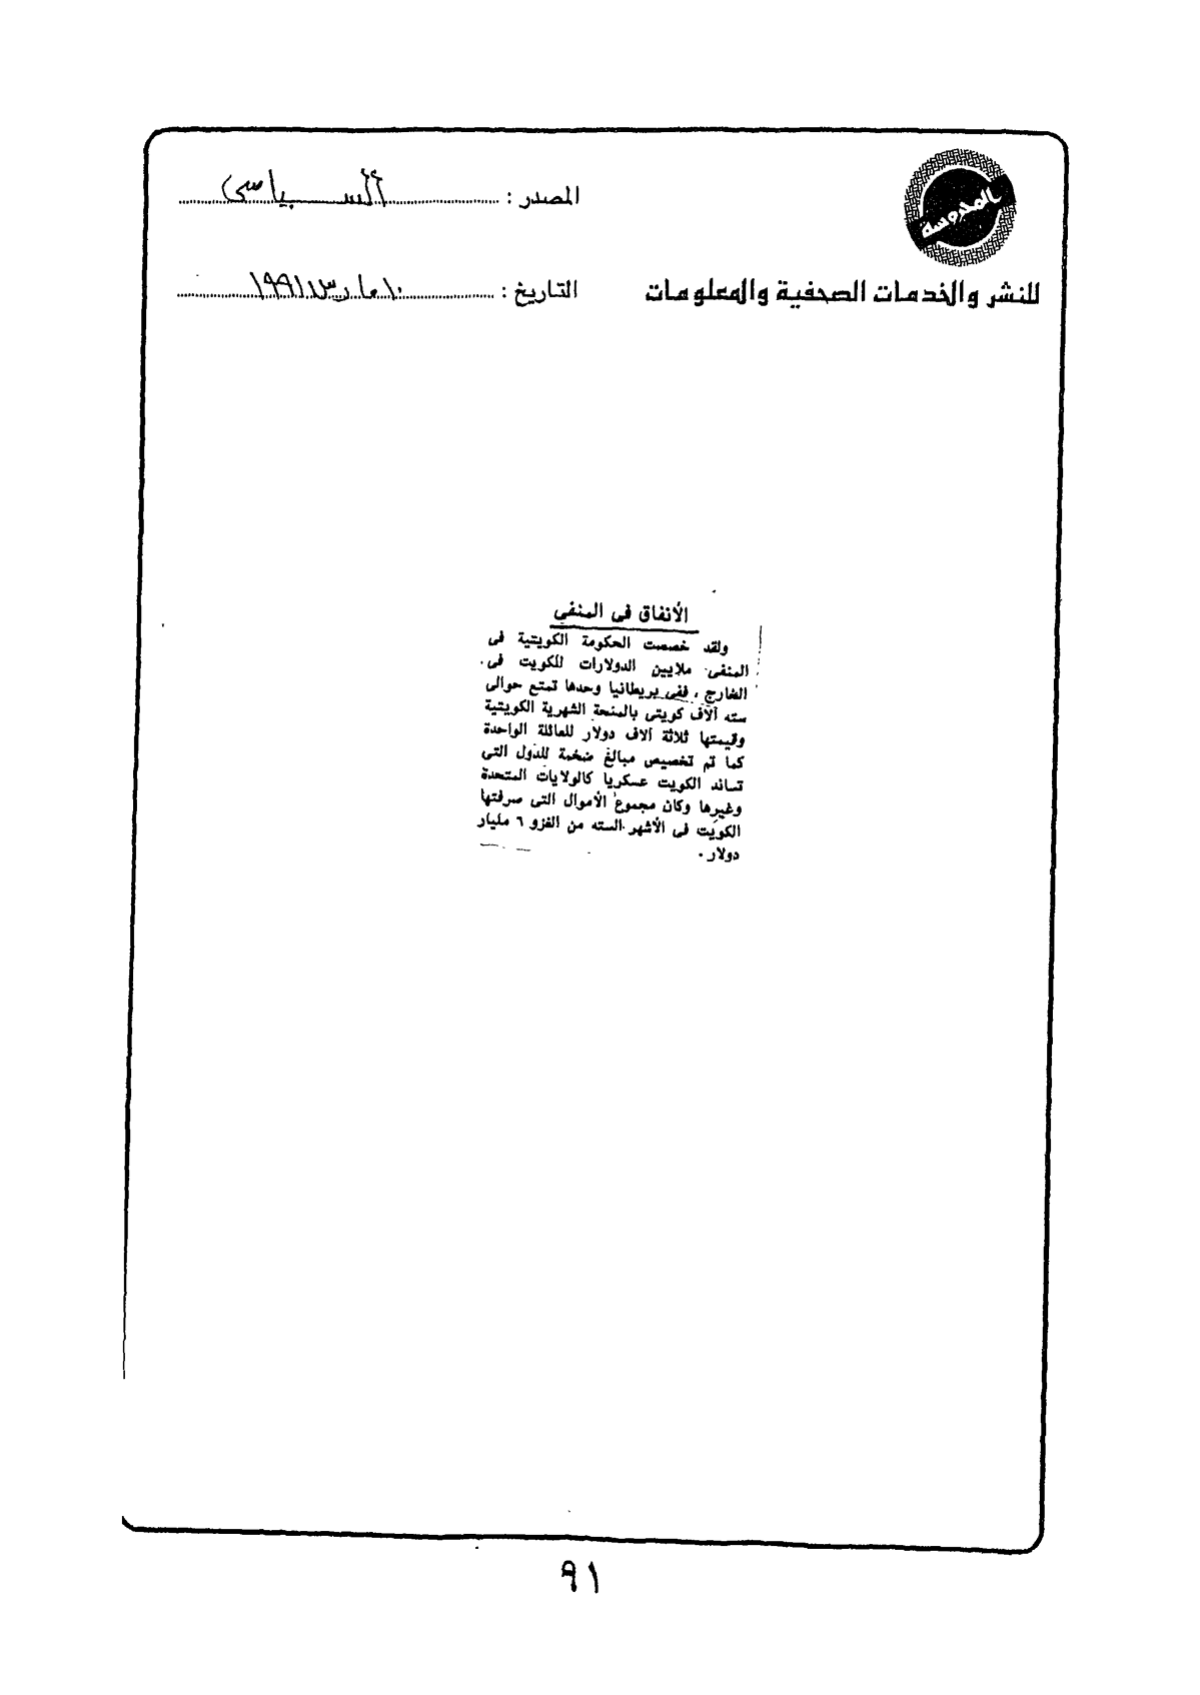 المصدر : السياسى
للنشر والخدمات الصحفية والمعلومات
التاريخ : ١٠ مارس ١٩٩١
الأنفاق فى المنفي
ولقد خصصت الحكومة الكويتية فى
المنفى ملايين الدولارات للكويت فى
الخارج ، ففى بريطانيا وحدها تمتع حوالى
سته آلاف كويتى بالمنحة الشهرية الكويتية
وقيمتها ثلاثة آلاف دولار للعائلة الواحدة
كما تم تخصيص مبالغ ضخمة للدول التى
تساند الكويت عسكريا كالولايات المتحدة
وغيرها وكان مجموع الأموال التى صرفتها
الكويت فى الأشهر السته من الغزو ٦ مليار
دولار .
٩١